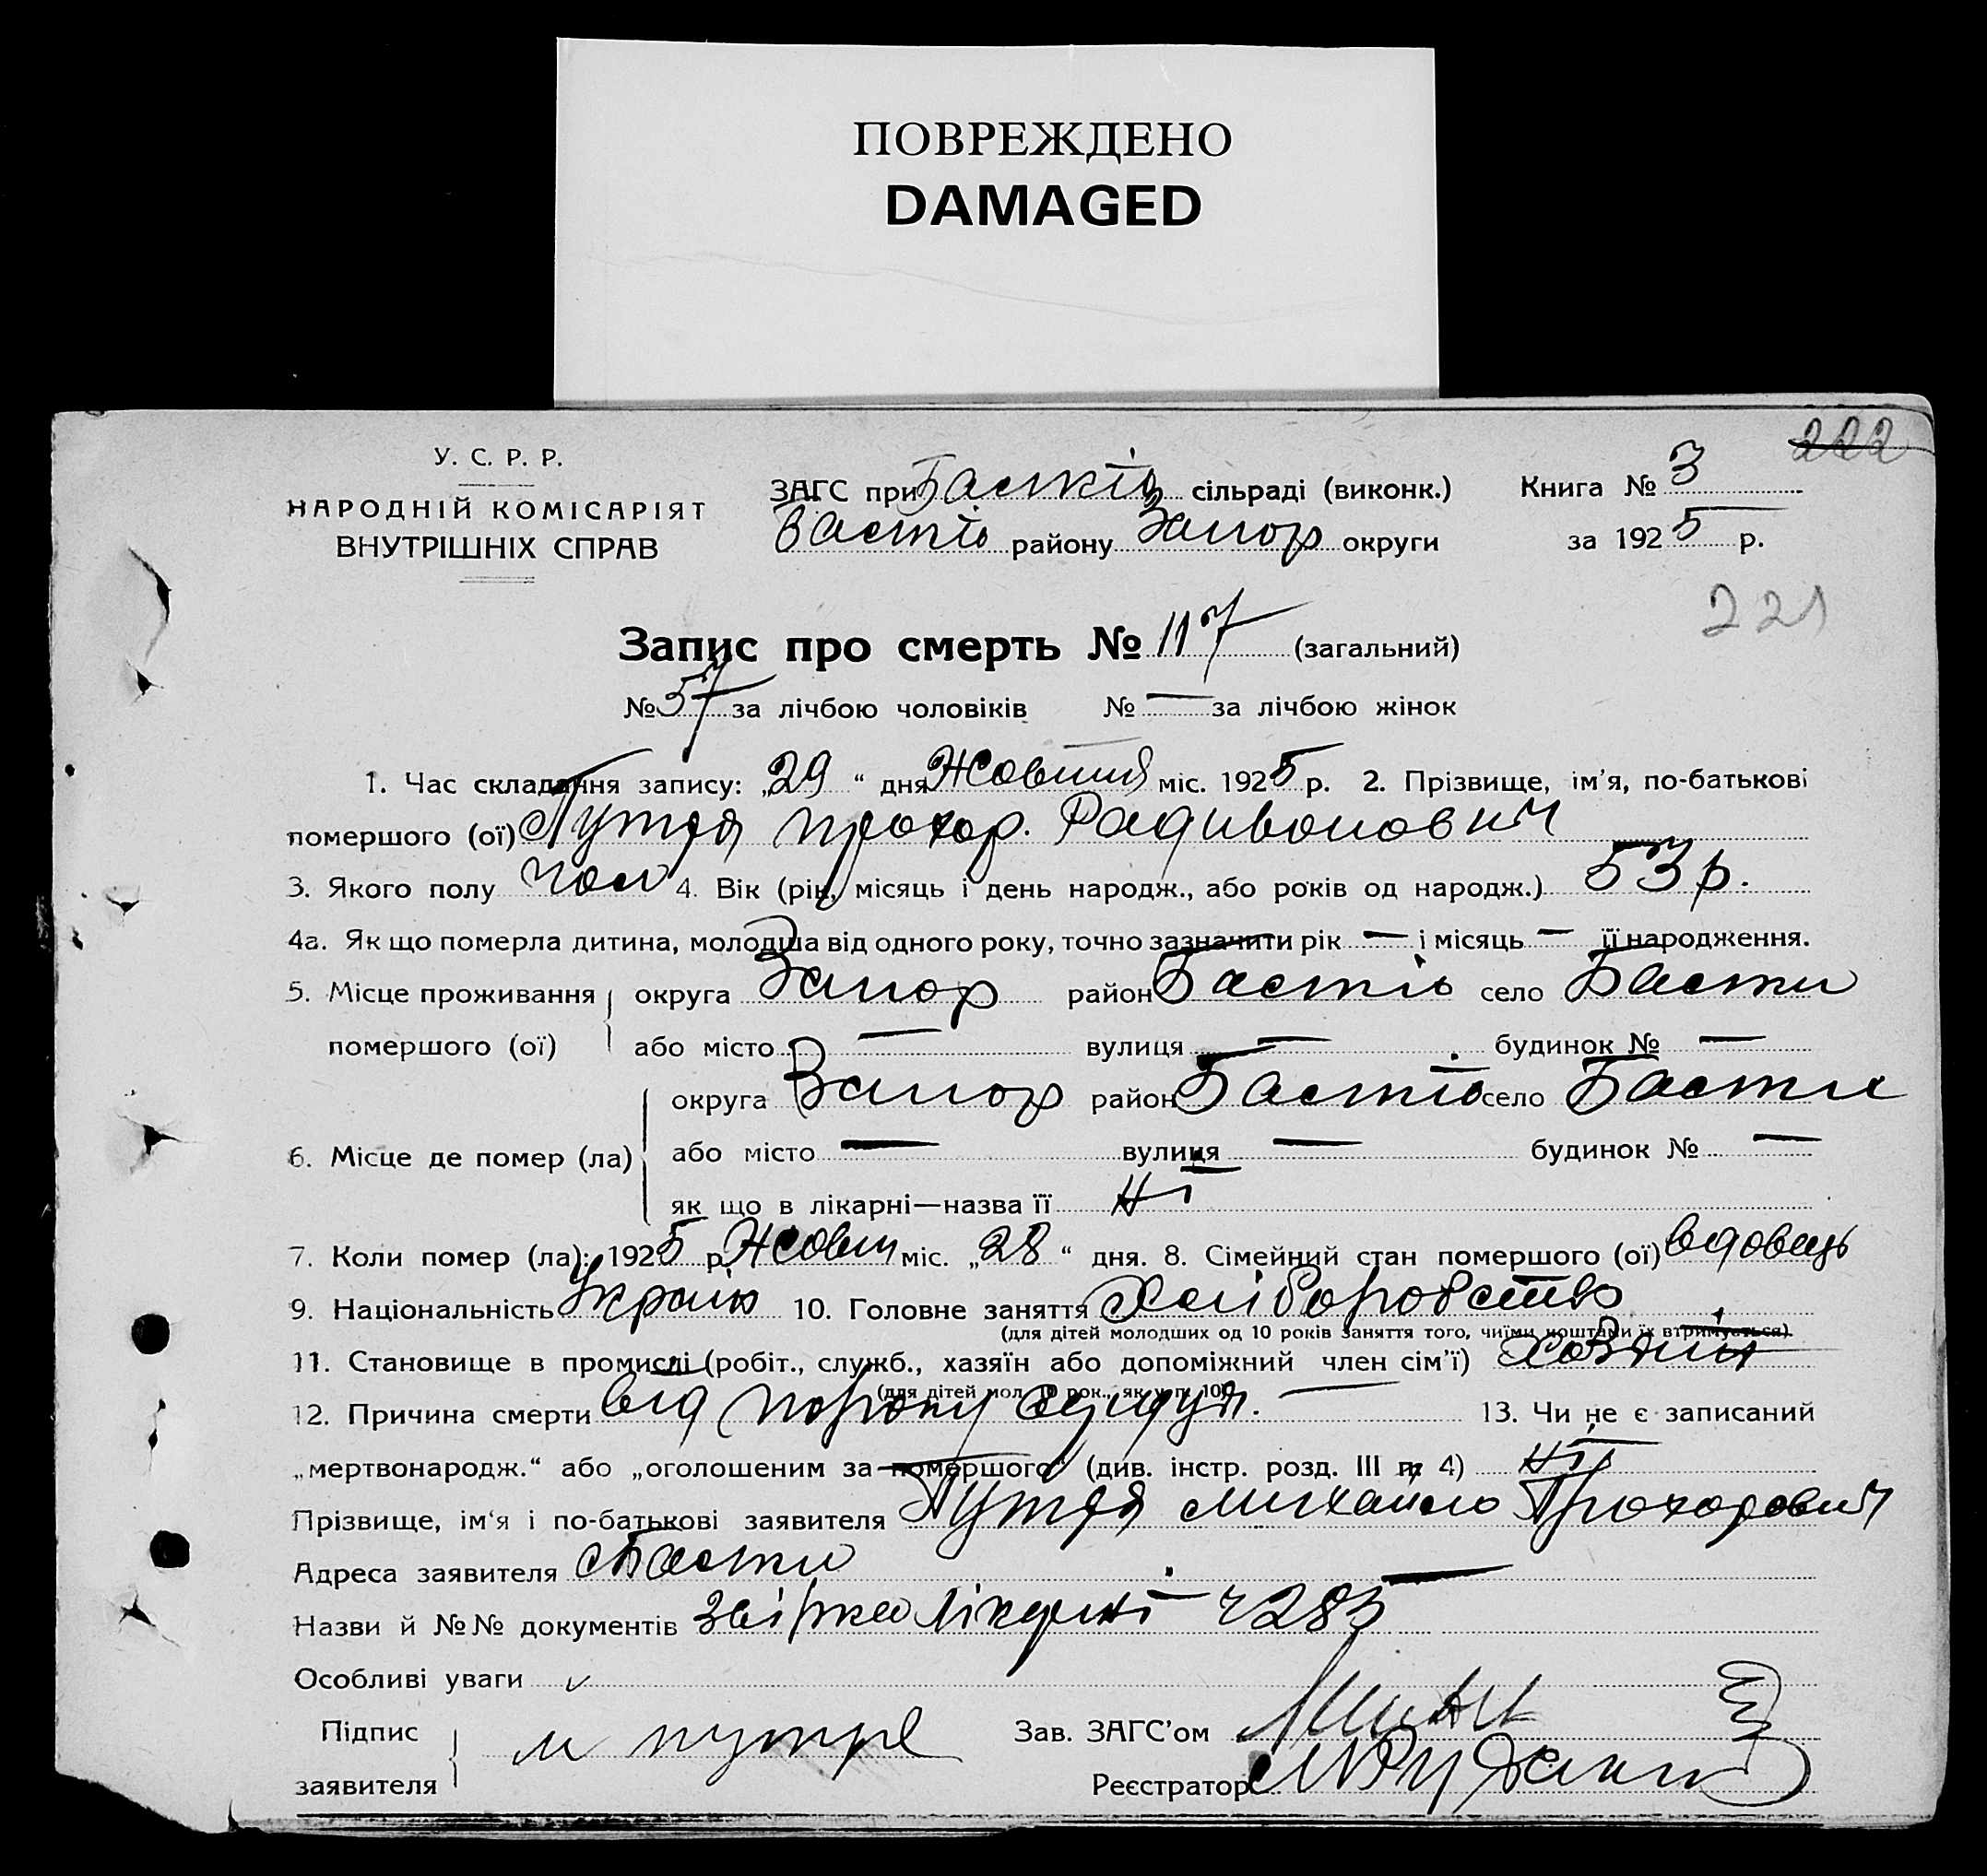 ПОВРЕЖДЕНО
DAMAGED
222
У. С. Р. Р.
НАРОДНІЙ КОМІСАРІЯТ
ВНУТРІШНІХ СПРАВ
ЗАГС при сільраді (виконк.)
району Запор округи
Книга № 3
за 1925 р.
221
Запис про смерть № 117 (загальний)
№ 57 за лічбою чоловіків № — за лічбою жінок
1. Час складання запису: „29“ дня Жовтня міс. 1925 р. 2. Прізвище, ім'я, по-батькові
помершого (ої) Путря Прохор. Радивонович
3. Якого полу чол 4. Вік (рік, місяць і день народж., або років од народж.) 53 р.
4а. Як що померла дитина, молодша від одного року, точно зазначити рік — і місяць — її народження.
5. Місце проживання округа Запор район село
помершого (ої) або місто — вулиця — будинок № —
округа Запор район село
6. Місце де помер (ла) або місто — вулиця — будинок № —
як що в лікарні—назва її ні
7. Коли помер (ла): 1925 р. Жовтн міс. „28“ дня. 8. Сімейний стан помершого (ої) вдовець
9. Національність Україн 10. Головне заняття Хліборобство
(для дітей молодших од 10 років заняття того, чиїми коштами їх втримується)
11. Становище в промислі (робіт., служб., хазяїн або допоміжний член сім'ї)
(для дітей мол. 10 рок., як у п. 10)
12. Причина смерти від пороку 13. Чи не є записаний
„мертвонародж.“ або „оголошеним за помершого“ (див. інстр. розд. III п. 4) ні
Прізвище, ім'я і по-батькові заявителя Путря Михайло Прохорович
Адреса заявителя
Назви й №№ документів лікарні ч 285
Особливі уваги
Підпис
заявителя м путря
Зав. ЗАГС'ом
Реєстратор